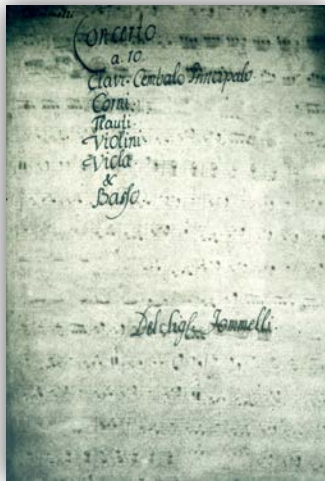 Concerto
a. 10
Clavi-Cembalo Principale.
Corni.
Flauti.
Violini.
Viola
&
Basso.
Del Sigl: Jommelli.